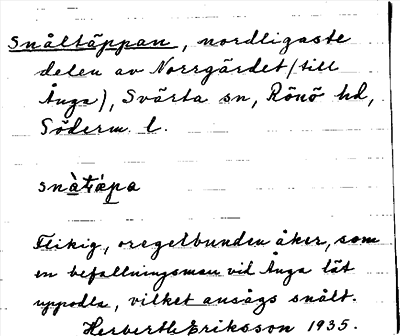 Snåltäppan, nordligaste
delen av Norrgärdet (till
Ånga), Svärta sn, Rönö hd,
Söderm. l.
Flikig, oregelbunden åker, som
en befallningsman vid Ånga lät
uppodla, vilket ansågs snålt.
Herberth Eriksson 1935.